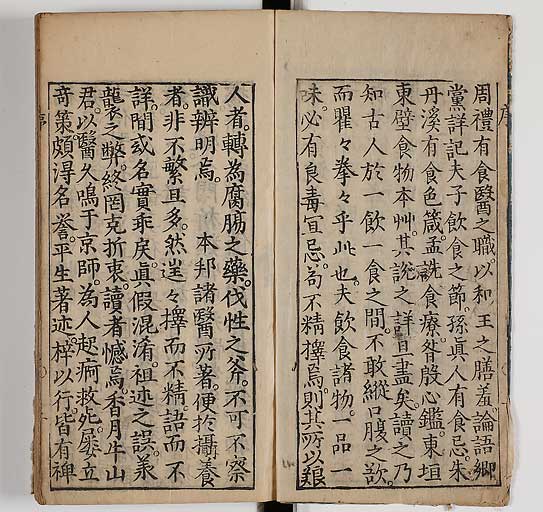 序
周禮有食醫之職。以和王之膳羞。論語鄉
黨詳記夫子飲食之節。孫眞人有食忌。朱
丹溪有食色箴。孟詵食療。昝殷心鑑。東垣
東壁食物本艸。其說之詳且盡矣。讀之乃
知古人於一飲一食之間。不敢縱口腹之欲。
而瞿々拳々乎此也。夫飲食諸物。一品一
味。必有良毒宜忌。苟不精擇焉。則其所以養
人者。轉為腐腸之藥。伐性之斧。不可不察
識辨明焉。本邦諸醫所著。便於攝養
者。非不繁且多。然逞々擇而不精。語而不
詳。間或名實乖戾。眞假混淆。祖述之誤。承
襲之弊。終罔克折衷。讀者憾焉。香月牛山
君。以醫久鳴于京師。為人起痾救死。屡立
奇策。頗得名譽。平生著述。梓以行。皆有裨
序